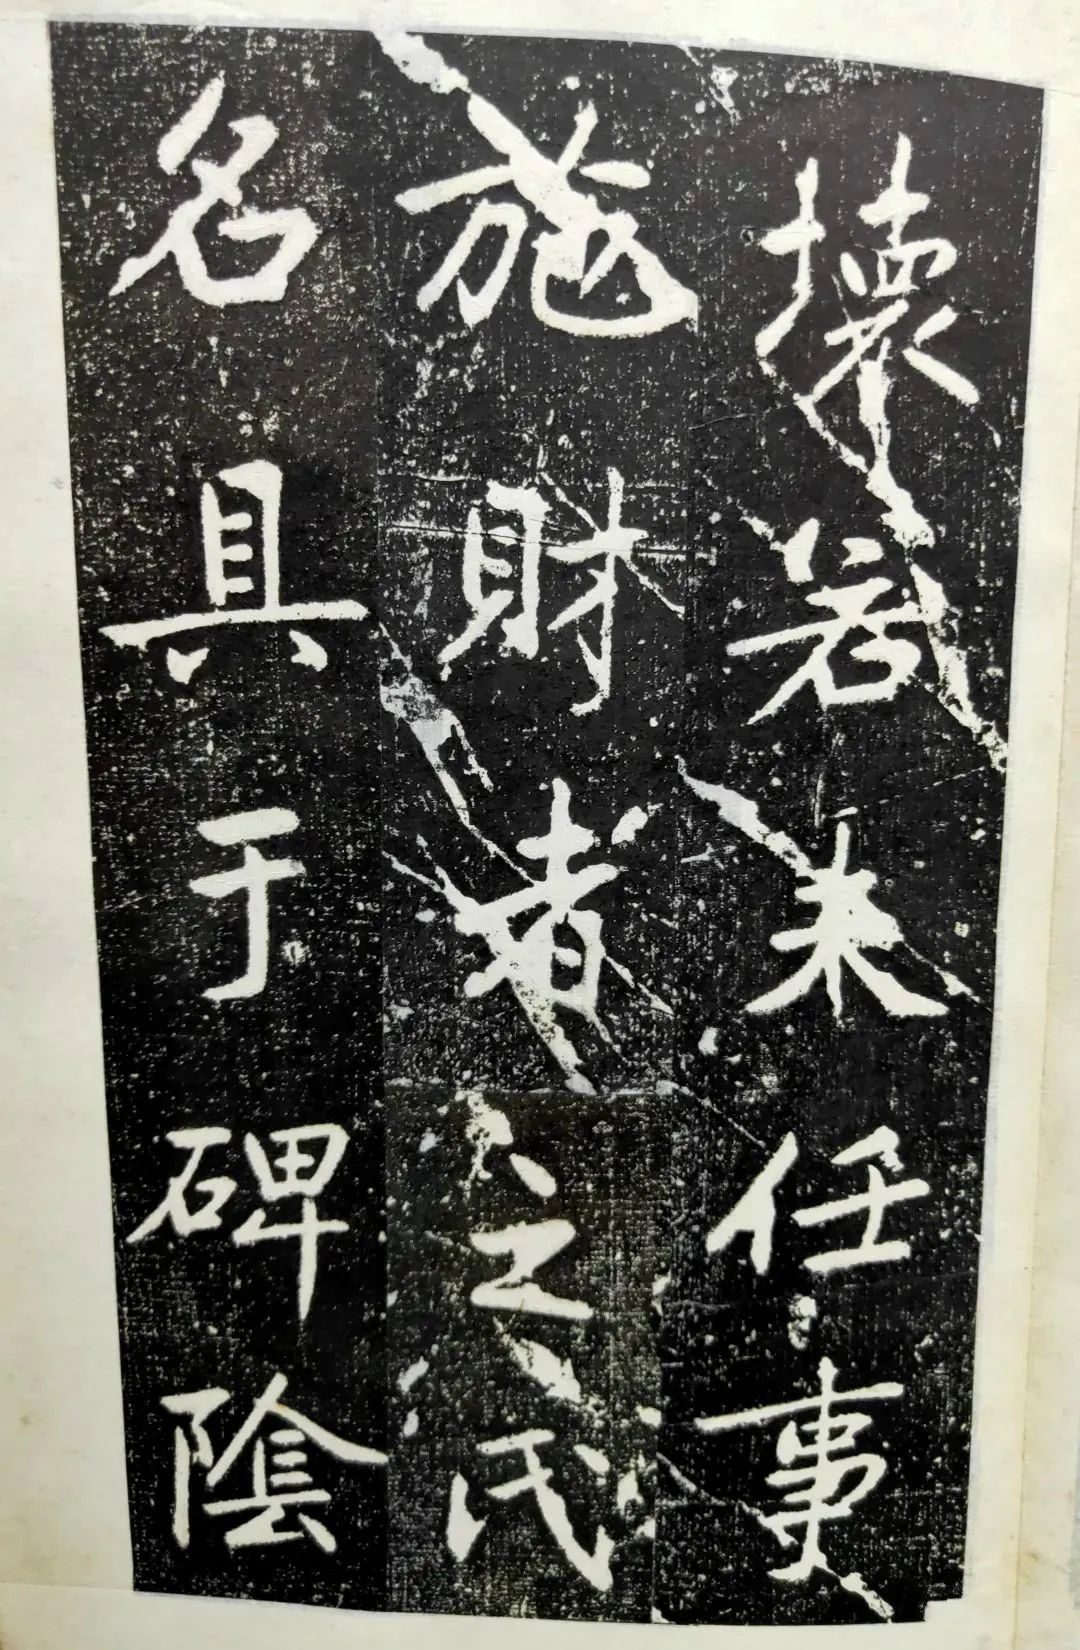 壞若未任事
施財者之氏
名具于碑陰